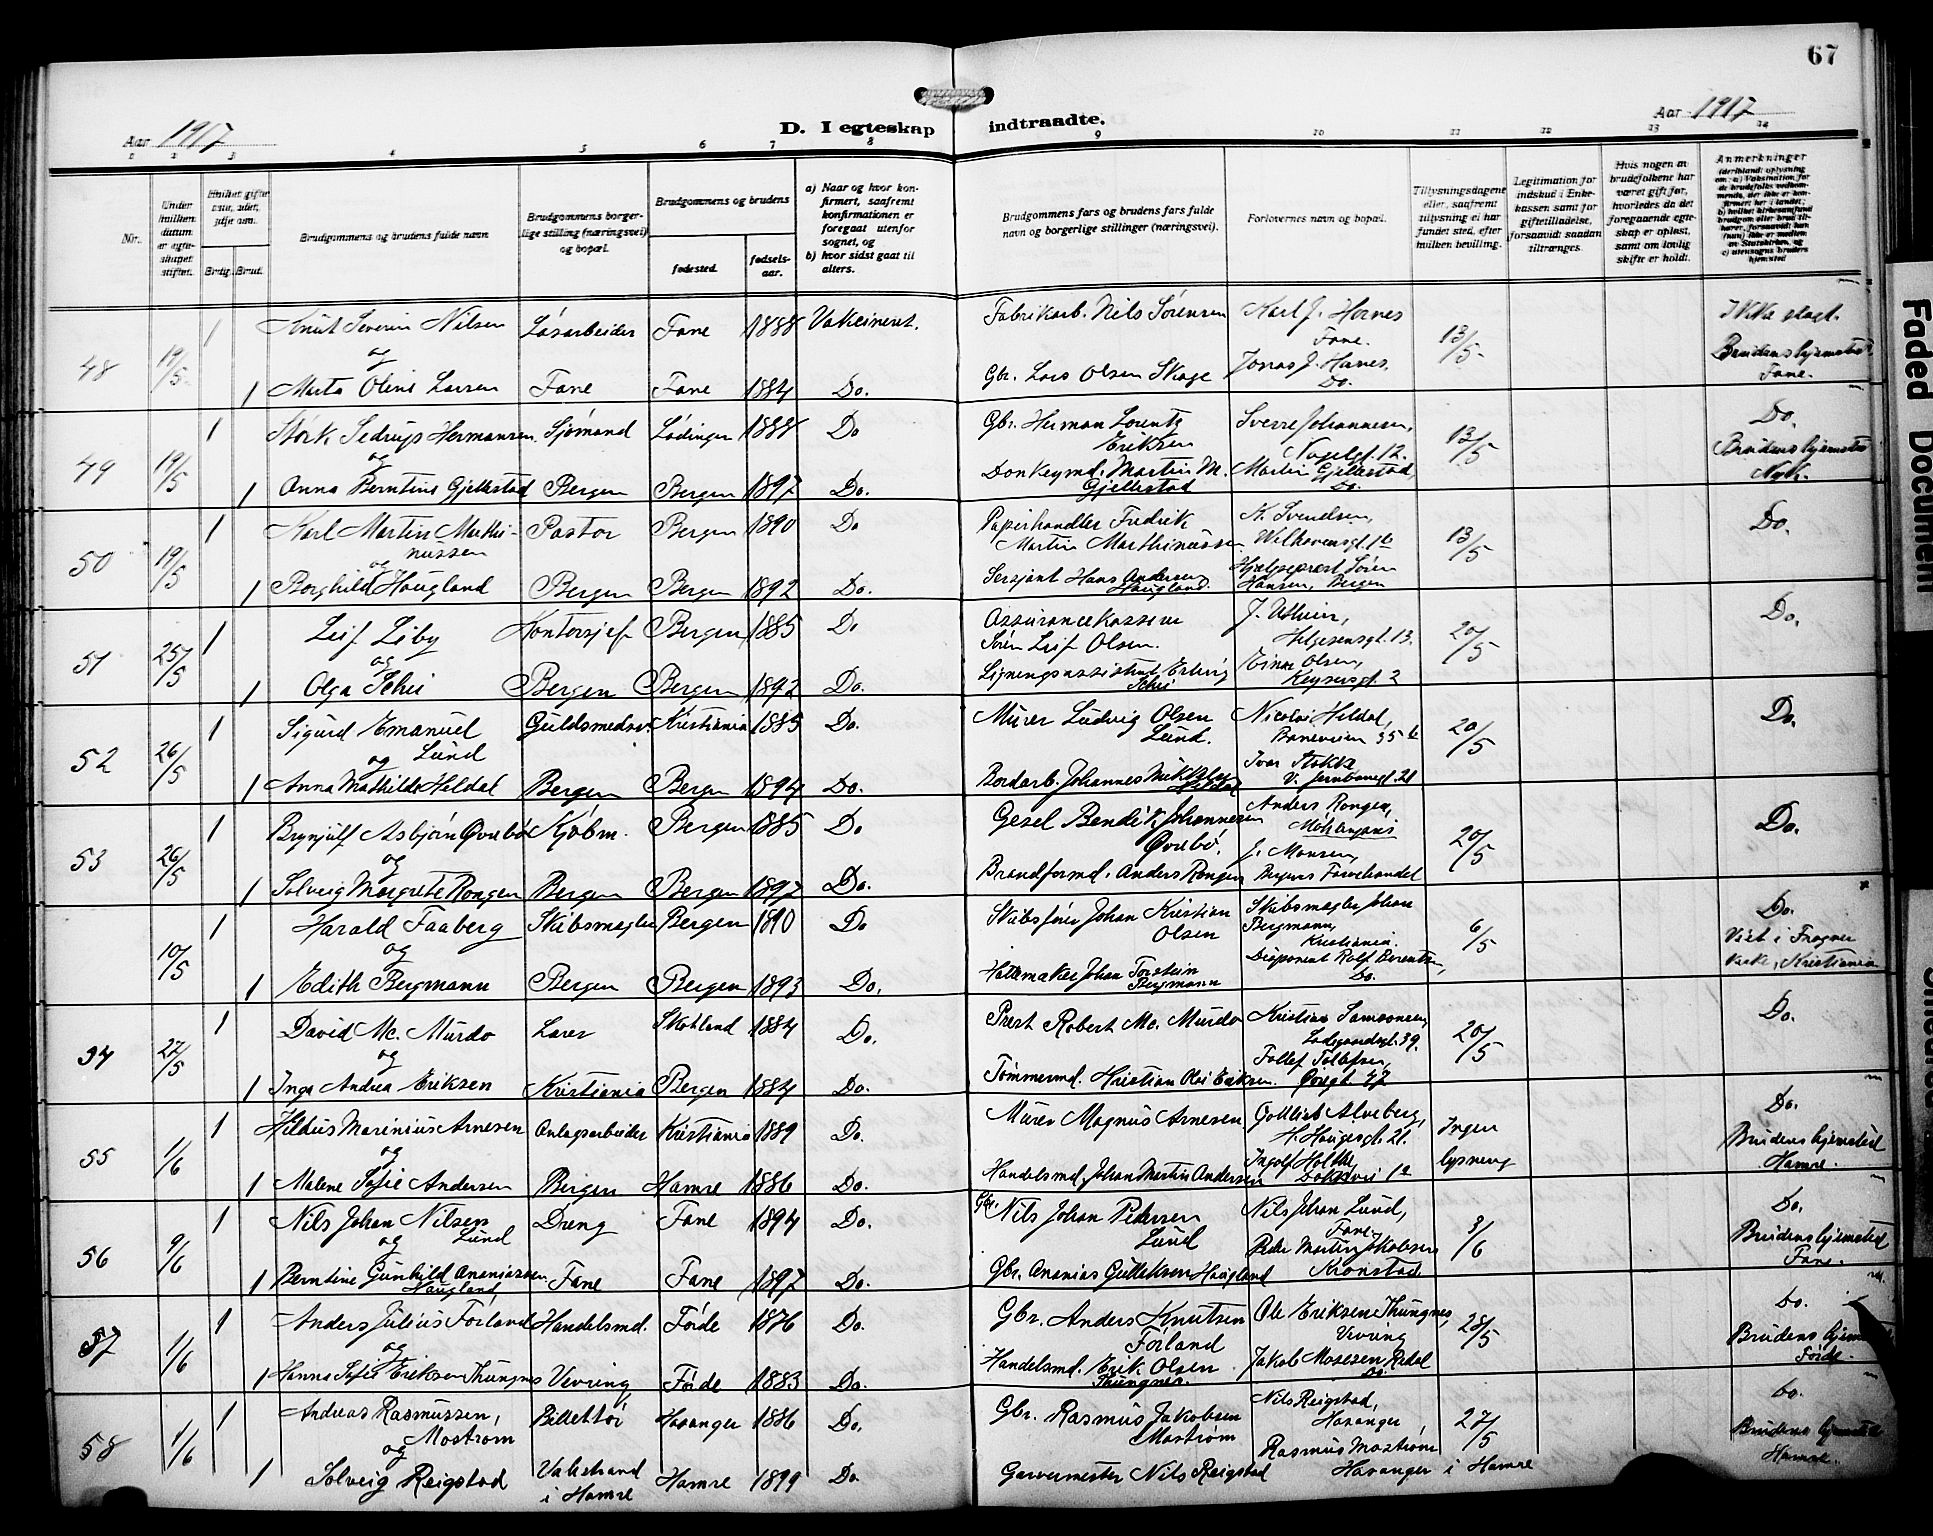 67
Aar 1917
D. I egteskap indtraadte.
Aar 1917
1 2 3 4 5 6 7 8 9 10 11 12 13 14
Nr.
Under hvilken datum er egteskapet stiftet.
Hvilket gifte
Brdg. Brud.
Brudgommens og brudens fulde navn
Brudgommens borgerlige stilling (næringsvei) og bopæl.
Brudgommens og brudens
fødested.
fødselsaar.
a) Naar og hvor konfirmert, saafremt konfirmationen er foregaat utenfor sognet, og
b) hvor sidst gaat til alters.
Brudgommens fars og brudens fars fulde navn og borgerlige stillinger (næringsvei).
Forlovernes navn og bopæl.
Tillysningsdagene eller, saafremt tillysning ei har fundet sted, efter hvilken bevilling.
Legitimation for indskud i Enkekassen samt for giftetilladelse, forsaavidt saadan tiltrænges.
Hvis nogen av brudefolkene har været gift før, hvorledes da det foregaaende egteskap er opløst, samt om lovlig skifte er holdt.
Anmerkninger
48 19/5 1 Knut Severin Nilsen Løsarbeider Fane 1888 Vakcineret. Fabrikarb. Nils Sørensen Karl J. Hernes Fane. 13/5 Ikke slegt.
og
1 Marta Oline Larsen Fane Fane 1884 Do. Gbr. Lars Olsen Skage Jonas J. Hernes, Do. Brudens hjemsted Fane.
49 19/5 1 Størk Sedrup Hermansen Sjømand Lødingen 1888 Do Gbr. Herman Lorentz Eriksen Sverre Johannesen, 13/5 Do.
og
1 Anna Berntine Gjellestad Bergen Bergen 1897 Do. Donkeymd. Martin M. Gjellestad Martin Gjellestad, Do. Brudens hjemsted Nyk.
50 19/5 1 Karl Martin Marthinussen Pastor Bergen 1890 Do Papirhandler Fredrik Martin Marthinussen K. Svendsen, Welhavensgt. 1b 13/5 Do.
og
1 Borghild Haugland Bergen Bergen 1892 Do. Sersjant Hans Andersen Haugland. Hjælpeprest Søren Hansen, Bergen
51 25/5 1 Leif Liby Kontorsjef Bergen 1885 Do Assurancekasserer Søren Leif Olsen. J. Utheim, Helgesensgt. 13. 20/5 Do.
og
1 Olga Schei Bergen Bergen 1892 Do. Ligningsassistent Erling Schei Einar Olsen, Keysersgt. 2
52 26/5 1 Sigurd Emanuel Lund Guldsmedsv. Kristiania 1885 Do. Murer Ludvig Olsen Lund. Nicolai Heldal, Baneveien 35b 20/5 Do.
og
1 Anna Mathilde Heldal Bergen Bergen 1894 Do. Bordarb. Johannes Mikkelsen Heldal Ivar Stokke V. Jernbanegt. 21
53 26/5 1 Brynjulf Asbjørn Øvrebø Kjøbm. Bergen 1885 Do Gesel Bendik Johannesen Øvrebø. Anders Rongen, Møhlenpris 20/5 Do.
og
1 Solveig Margrete Rongen Bergen Bergen 1897 Do. Brandformd. Anders Rongen J. Monsen, Bergens Farvehandel
10/5 1 Harald Faaberg Skibsmegler Bergen 1890 Do Skibsfører Johan Kristian Olsen Skibsmegler Johan Bergmann, Kristiania. 6/5 Do.
og
1 Edith Bergmann Bergen Bergen 1893 Do. Hattemaker Johan Torstein Bergmann Disponent Rolf Berentsen, Do. Viet i Frogner kirke, Kristiania
54 22/5 1 David Mc. Murdo Lærer Skotland 1884 Do. Prest Robert Mc. Murdo Kristian Samsonsen, Ladegaardsgt. 39. 20/5 Do.
og
1 Inga Andrea Eriksen Kristiania Bergen 1884 Do. Tømmermd. Kristian Olai Eriksen. Tollef Tollefsen, Øvregt. 47
55 1/6 1 Hildus Marinius Arnesen Anlagsarbeider Kristiania 1889 Do. Murer Magnus Arnesen Gottlieb Alveberg, H. Haugesgt. 21. Ingen lysning Do.
og
1 Malene Sofie Andersen Bergen Hamre 1886 Do. Handelsmd. Johan Martin Andersen Ingolf Holthe, Dokkvei 1a Brudens hjemsted Hamre.
56 9/6 1 Nils Johan Nilsen Lund Dreng Fane 1894 Do. Gbr. Nils Johan Petersen Lund Nils Johan Lund, Fane, 3/6 Do.
og
1 Berntine Gunhild Ananiassen Haugland Fane Fane 1897 Do. Gbr. Ananias Gulleksen Haugland Peder Martin Jakobsen Kronstad. Brudens hjemsted Fane.
57 1/6 1 Anders Julius Førland Handelsmd. Førde 1876 Do. Gbr. Anders Knutsen Førland Ole Eriksen Thungnes, Vevring 28/5 Do.
og
1 Hanna Sofie Eriksen Thungnes Vevring Førde 1883 Do. Handelsmd. Erik Olsen Thungnes. Jakob Mosesen Redal Do. Brudens hjemsted Førde.
58 1/6 1 Andreas Rasmussen Mostrøm Billettør Hosanger 1886 Do. Gbr. Rasmus Jakobsen Mostrøm Nils Reigstad, Hosanger 27/5 Do.
og
1 Solveig Reigstad Valestrand i Hamre Hamre 1899 Do Garvermester Nils Reigstad Rasmus Mostrøm Hosanger i Hamre Brudens hjemsted Hamre.